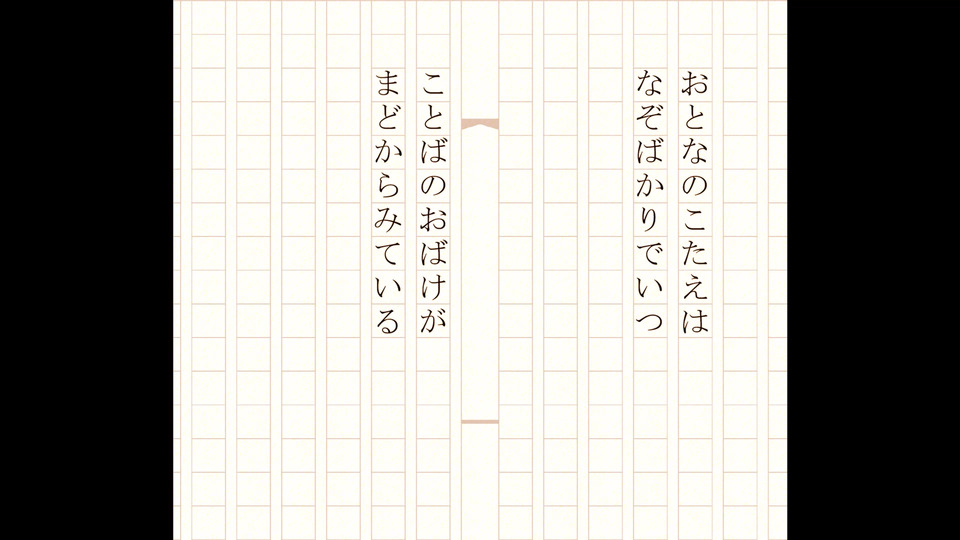 おとなのこたえは
なぞばかりでいつ
ことばのおばけが
まどからみている